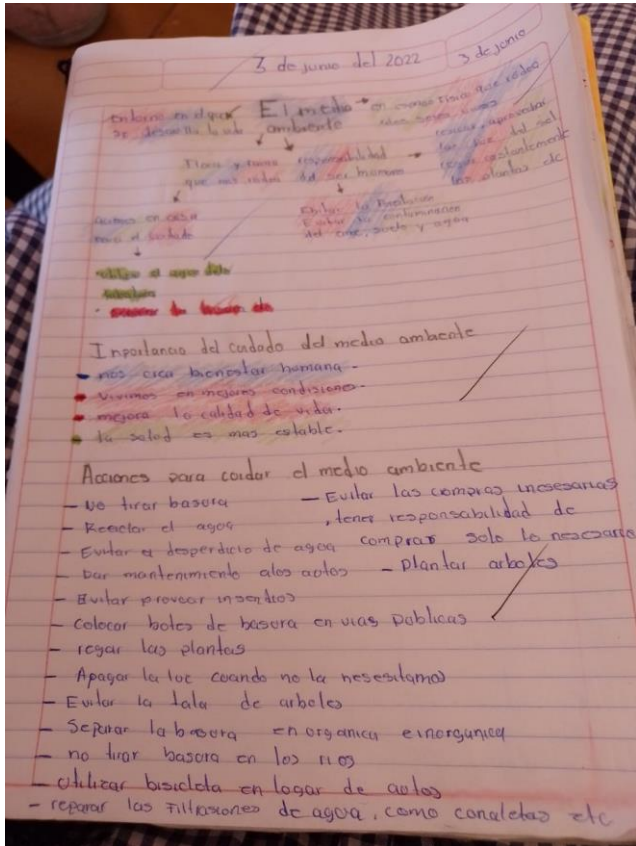 3 de junio del 2022
3 de jonio
entorno en el que
se desarrolla la vida
El medio
ambiente
en característica que rodea
los seres vivos
reciclar, aprovechar
la luz del sol
regar constantemente
las plantas etc
Flora y fauna
que nos rodea
responsabilidad
del ser humano
Acciones en casa
para el cuidado
Evitar la
Evitar la contaminacion
del aire, suelo y agua
utilizar el agua de
Inportancia del cuidado del medio ambiente
- nos crea bienestar homana.
- vivimos en mejores condisiones.
- mejora la calidad de vida.
- la salud es mas estable.
Acciones para coidar el medio ambiente
- No tirar basora
- Reciclar el agoa
- Evitar el desperdicio de agoa
- Dar mantenimiento alos aotos
- Evitar provocar insendios
- Colocar botes de basora en vias poblicas
- regar las plantas
- Apagar la luc coando no la nesesitamos
- Evitar la tala de arboles
- Separar la basora en organica e inorganica
- no tirar basora en los rios
- utilizar bisicleta en logar de aotos
- reparar las filtrasiones de agoa, como conaletas etc
- Evitar las compras inesesarias
, tener responsabilidad de
comprar solo lo nescesario
- plantar arboles